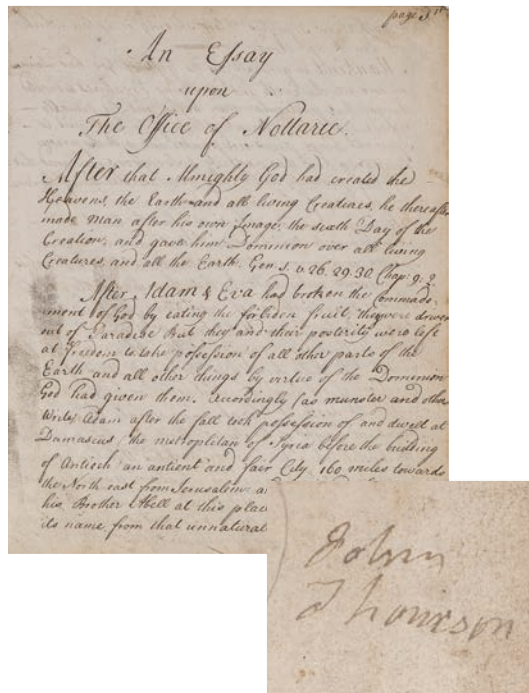 page 1st
An Essay
upon
The Office of Nottarie.
After that Almighty God had created the
Heavens, the Earth and all living Creatures, he thereafter
made Man after his own Image, the sixth Day of the
Creation, and gave him Dominion over all living
Creatures, and all the Earth. Gen. 1. v. 26. 29. 30. Chap: 9: 2
After Adam & Eva had broken the Commade-
ment of God by eating the forbiden fruit, they were driven
out of Paradise But they and their posterity were left
at freedom to take possession of all other parts of the
Earth and all other things by virtue of the Dominion
God had given them. Accordingly (as munster and other
Writes Adam after the fall took possession of and dwelt at
Damascus, the metropolitan of Syria before the building
of Antioch an antient and fair City, 160 miles towards
the North east from Jerusalem: a
his Brother Abell at this plac
its name from that unnatural
John
Thomson